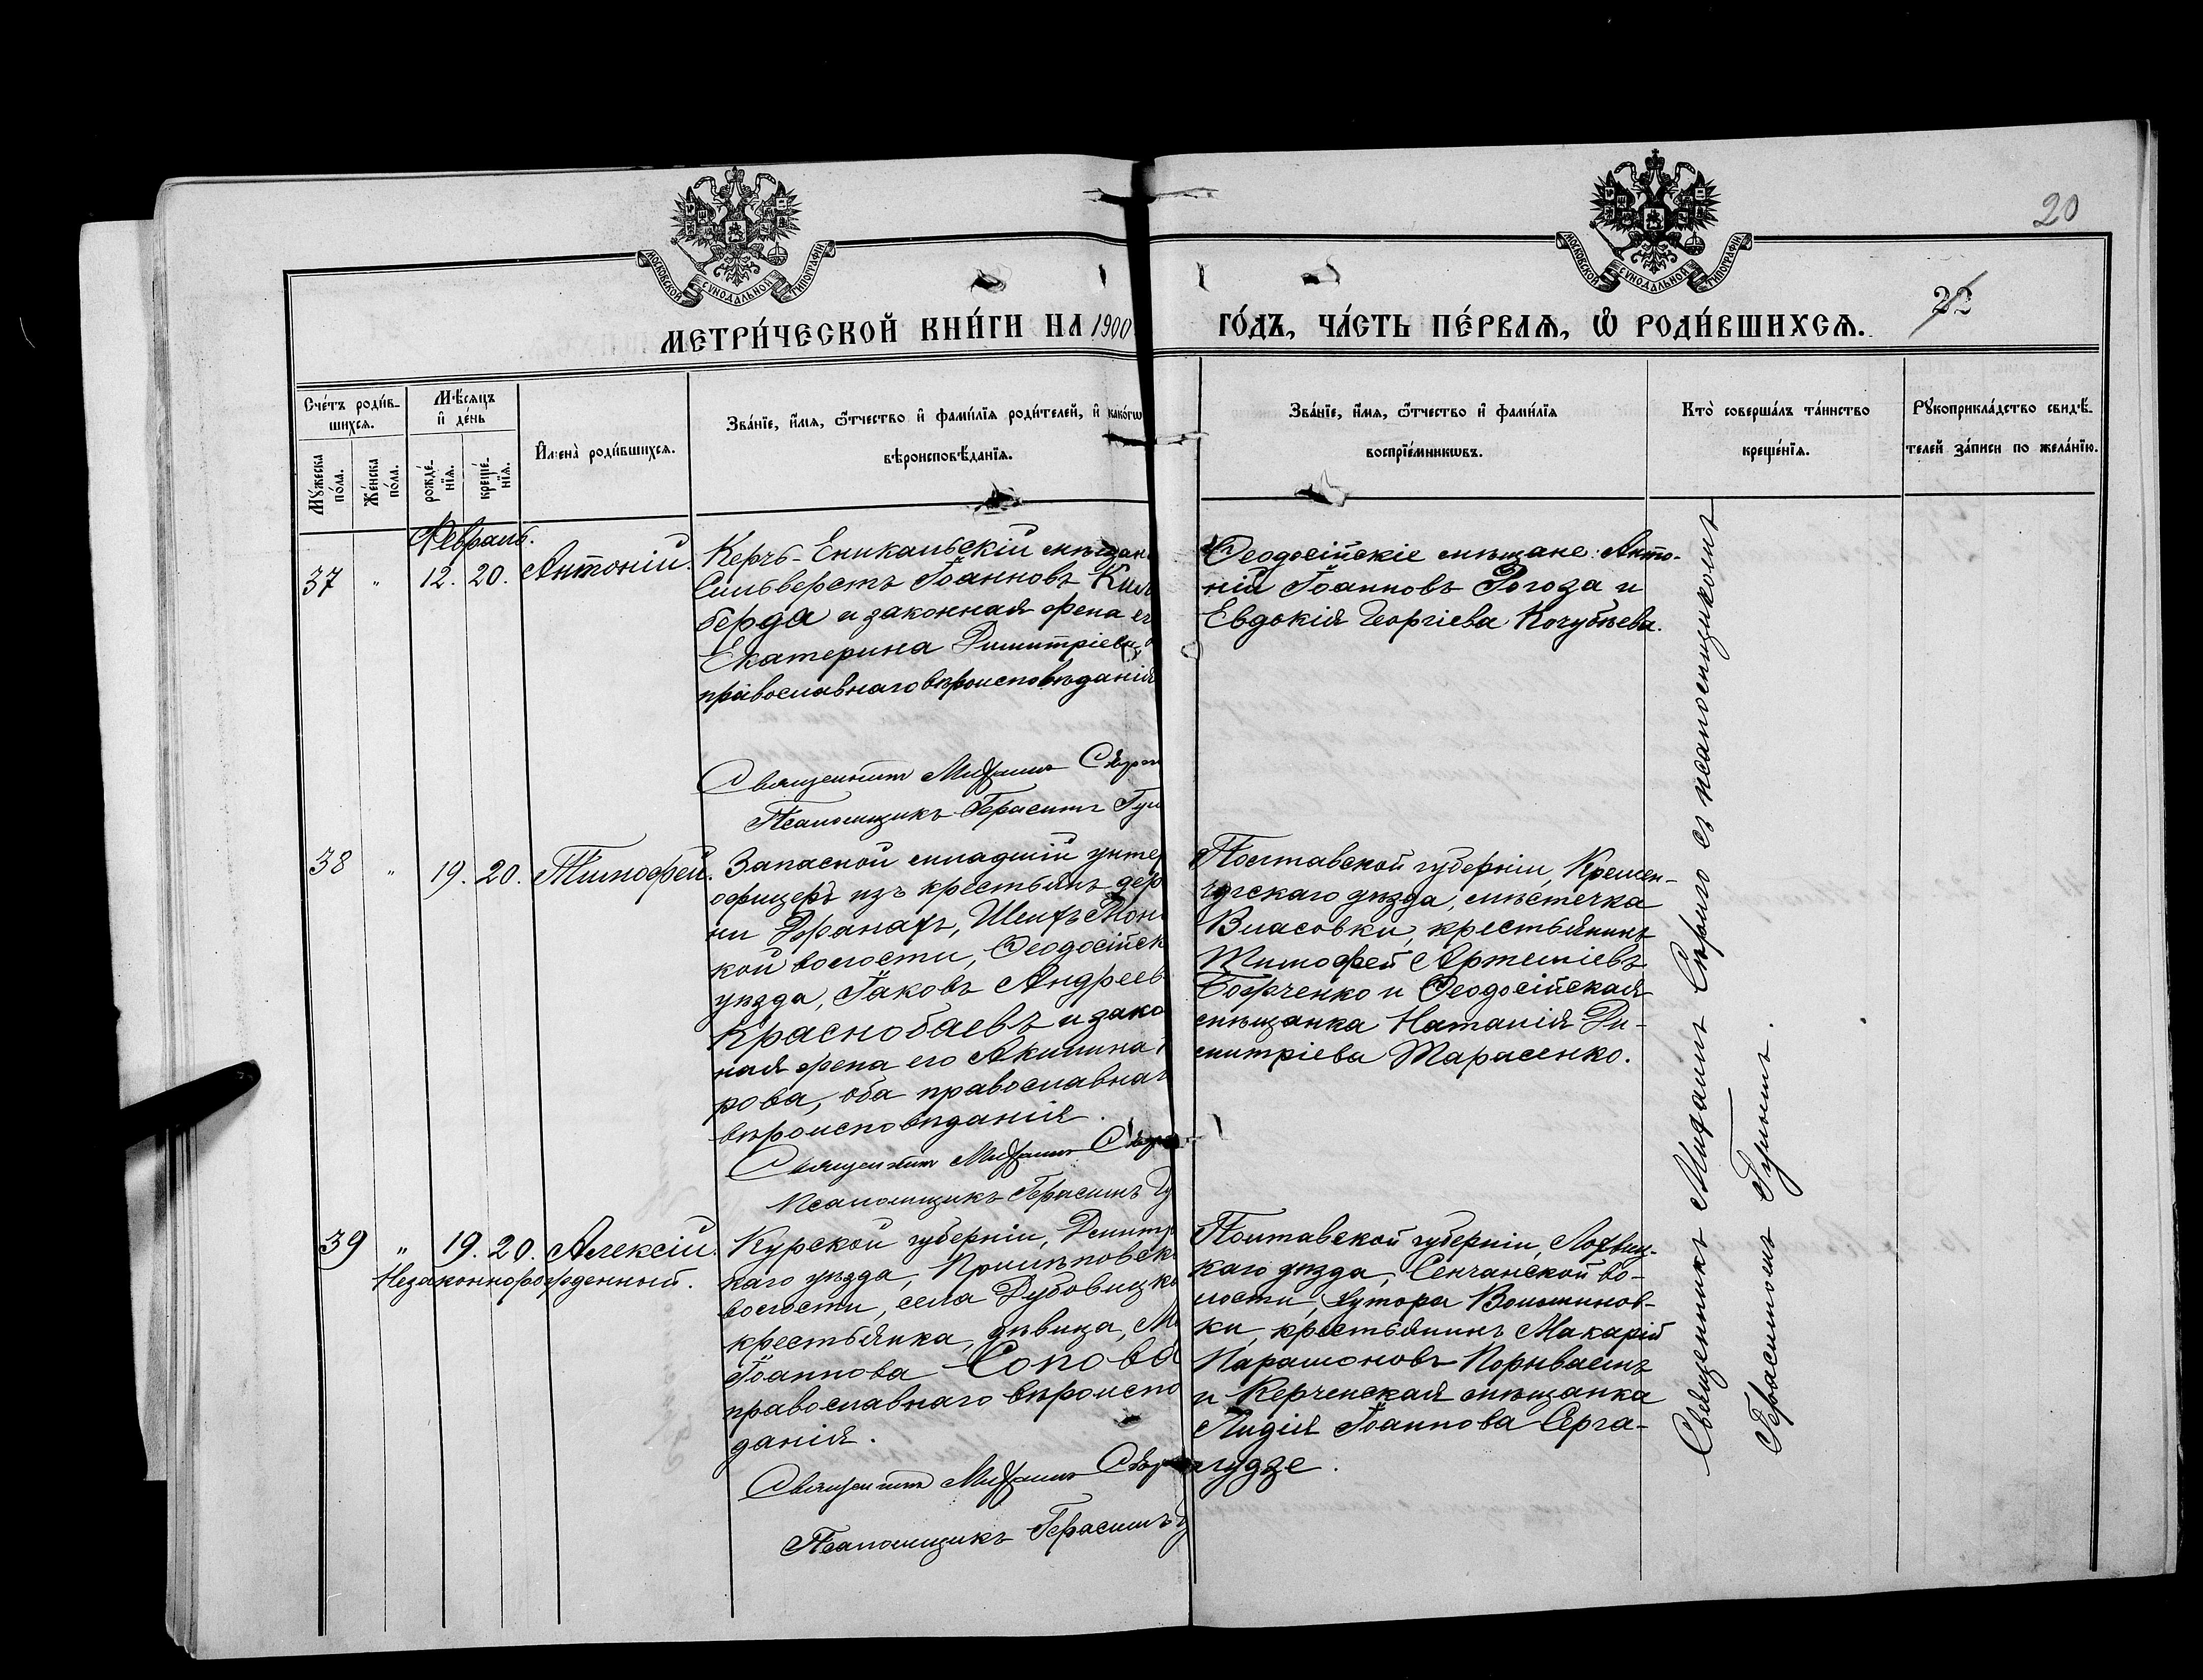 МОСКОВСКОЙ СѴНОДАЛЬНОЙ ТИПОГРАФІИ
МОСКОВСКОЙ СѴНОДАЛЬНОЙ ТИПОГРАФІИ
20
22
МЕТРИ́ЧЕСКОЙ КНИ́ГИ НА 1900 ГО́ДЪ, ЧА́СТЬ ПЕ́РВАЯ, Ѽ РОДИ́ВШИХСЯ.
Сче́тъ роди́в-
шихся.
Мꙋ́жеска
по́ла.
Же́нска
по́ла.
Мѣ́сяцъ
и҆ де́нь
рожде́-
нїя.
креще́-
нїя.
И҆мена̀ роди́вшихся.
Зва́нїе, и҆́мя, ѻ҆́тчество и҆ фами́лїя роди́телей, и҆ како́гѡ
вѣроисповѣ́данїя.
Зва́нїе, и҆́мя, ѻ҆́тчество и҆ фами́лїя
воспрїе́мникѡвъ.
Кто̀ соверша́лъ та́инство
креще́нїя.
Рꙋкоприкла́дство свидѣ́-
телей за́писи по жела́нїю.
Февраль.
37 " 12. 20. Антоній.
Керчь-Еникальскій мѣщан
Сильверстъ Іоанновъ Кил
берда и законная жена ег
Екатерина Димитріева,
православнаго вѣроисповѣданія
Священникъ Михаилъ Сѣр
Псаломщикъ Герасимъ Гу
Ѳеодосійскіе мѣщане: Анто-
ній Іоанновъ Рогоза и
Евдокія Георгіева Кочубѣева.
38 " 19. 20. Тимофей.
Запасной младшій унтер
офицеръ изъ крестьянъ дер
ни Джанах, Шейхъ Мон
кой волости, Ѳеодосійск
уѣзда, Іаковъ Андреев
Краснобаевъ и зако
ная жена его Акилина
рова, оба православнаг
вѣроисповѣданія.
Священникъ Михаилъ Сѣр
Псаломщикъ Герасимъ Гу
Полтавской губерніи, Кремен-
чугскаго уѣзда, мѣстечка
Власовки, крестьянинъ
Тимофей Артеміевъ
Божченко и Ѳеодосійская
мѣщанка Наталія Ди-
митріева Тарасенко.
39 " 19. 20. Алексій.
Незаконнорожденный.
Курской губерніи, Дмитр
каго уѣзда,
волости, села Дубовицко
крестьянка, дѣвица, М
Іоаннова Сопова
православнаго вѣроиспо
данія.
Священникъ Михаилъ Сѣр
Псаломщикъ Герасимъ Гу
Полтавской губерніи, Лохвиц-
каго уѣзда, Сенчанской во-
лости, хутора
ки, крестьянинъ Макарій
Парамоновъ Порываевъ
и Керченская мѣщанка
Лидія Іоаннова Серга-
лудзе.
Священникъ Михаилъ Сѣрого съ псаломщикомъ
Герасимомъ